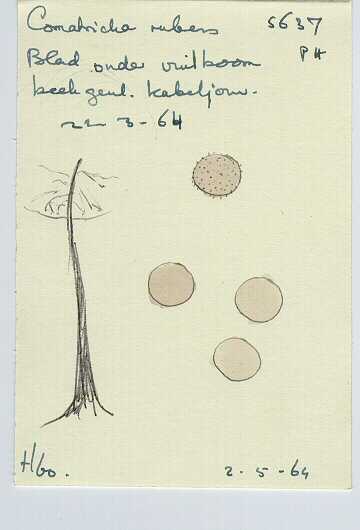 Comatricha rubens 5637
PH
Blad onder vuilboom
beek geul. Kabeljouw.
22 3-64
H/60. 2-5-64